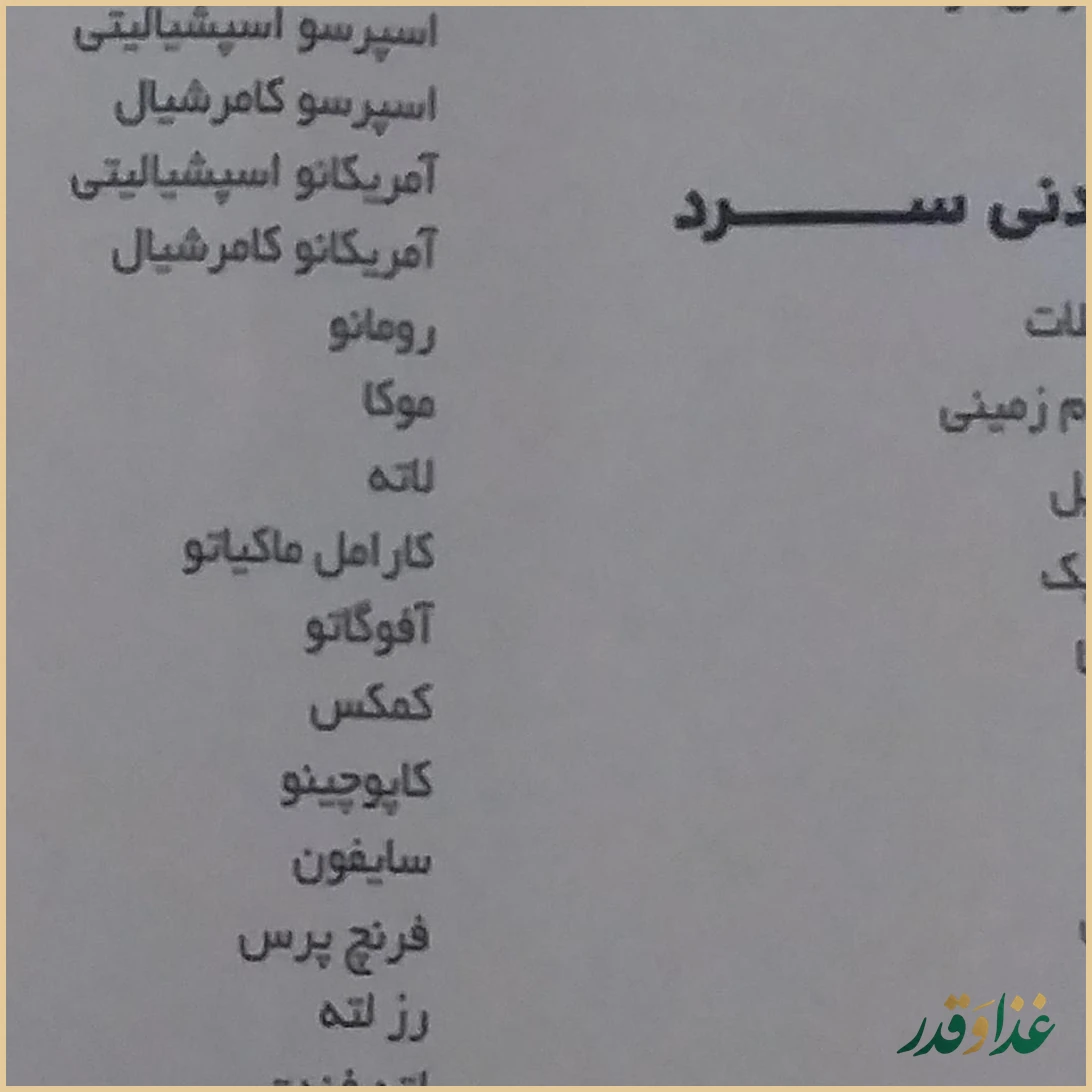 سرد
زمینی
اسپرسو اسپشیالیتی
اسپرسو کامرشیال
آمریکانو اسپشیالیتی
آمریکانو کامرشیال
رومانو
موکا
لاته
کارامل ماکیاتو
آفوگاتو
کمکس
کاپوچینو
سایفون
فرنچ پرس
رز لته
غذا و قدر